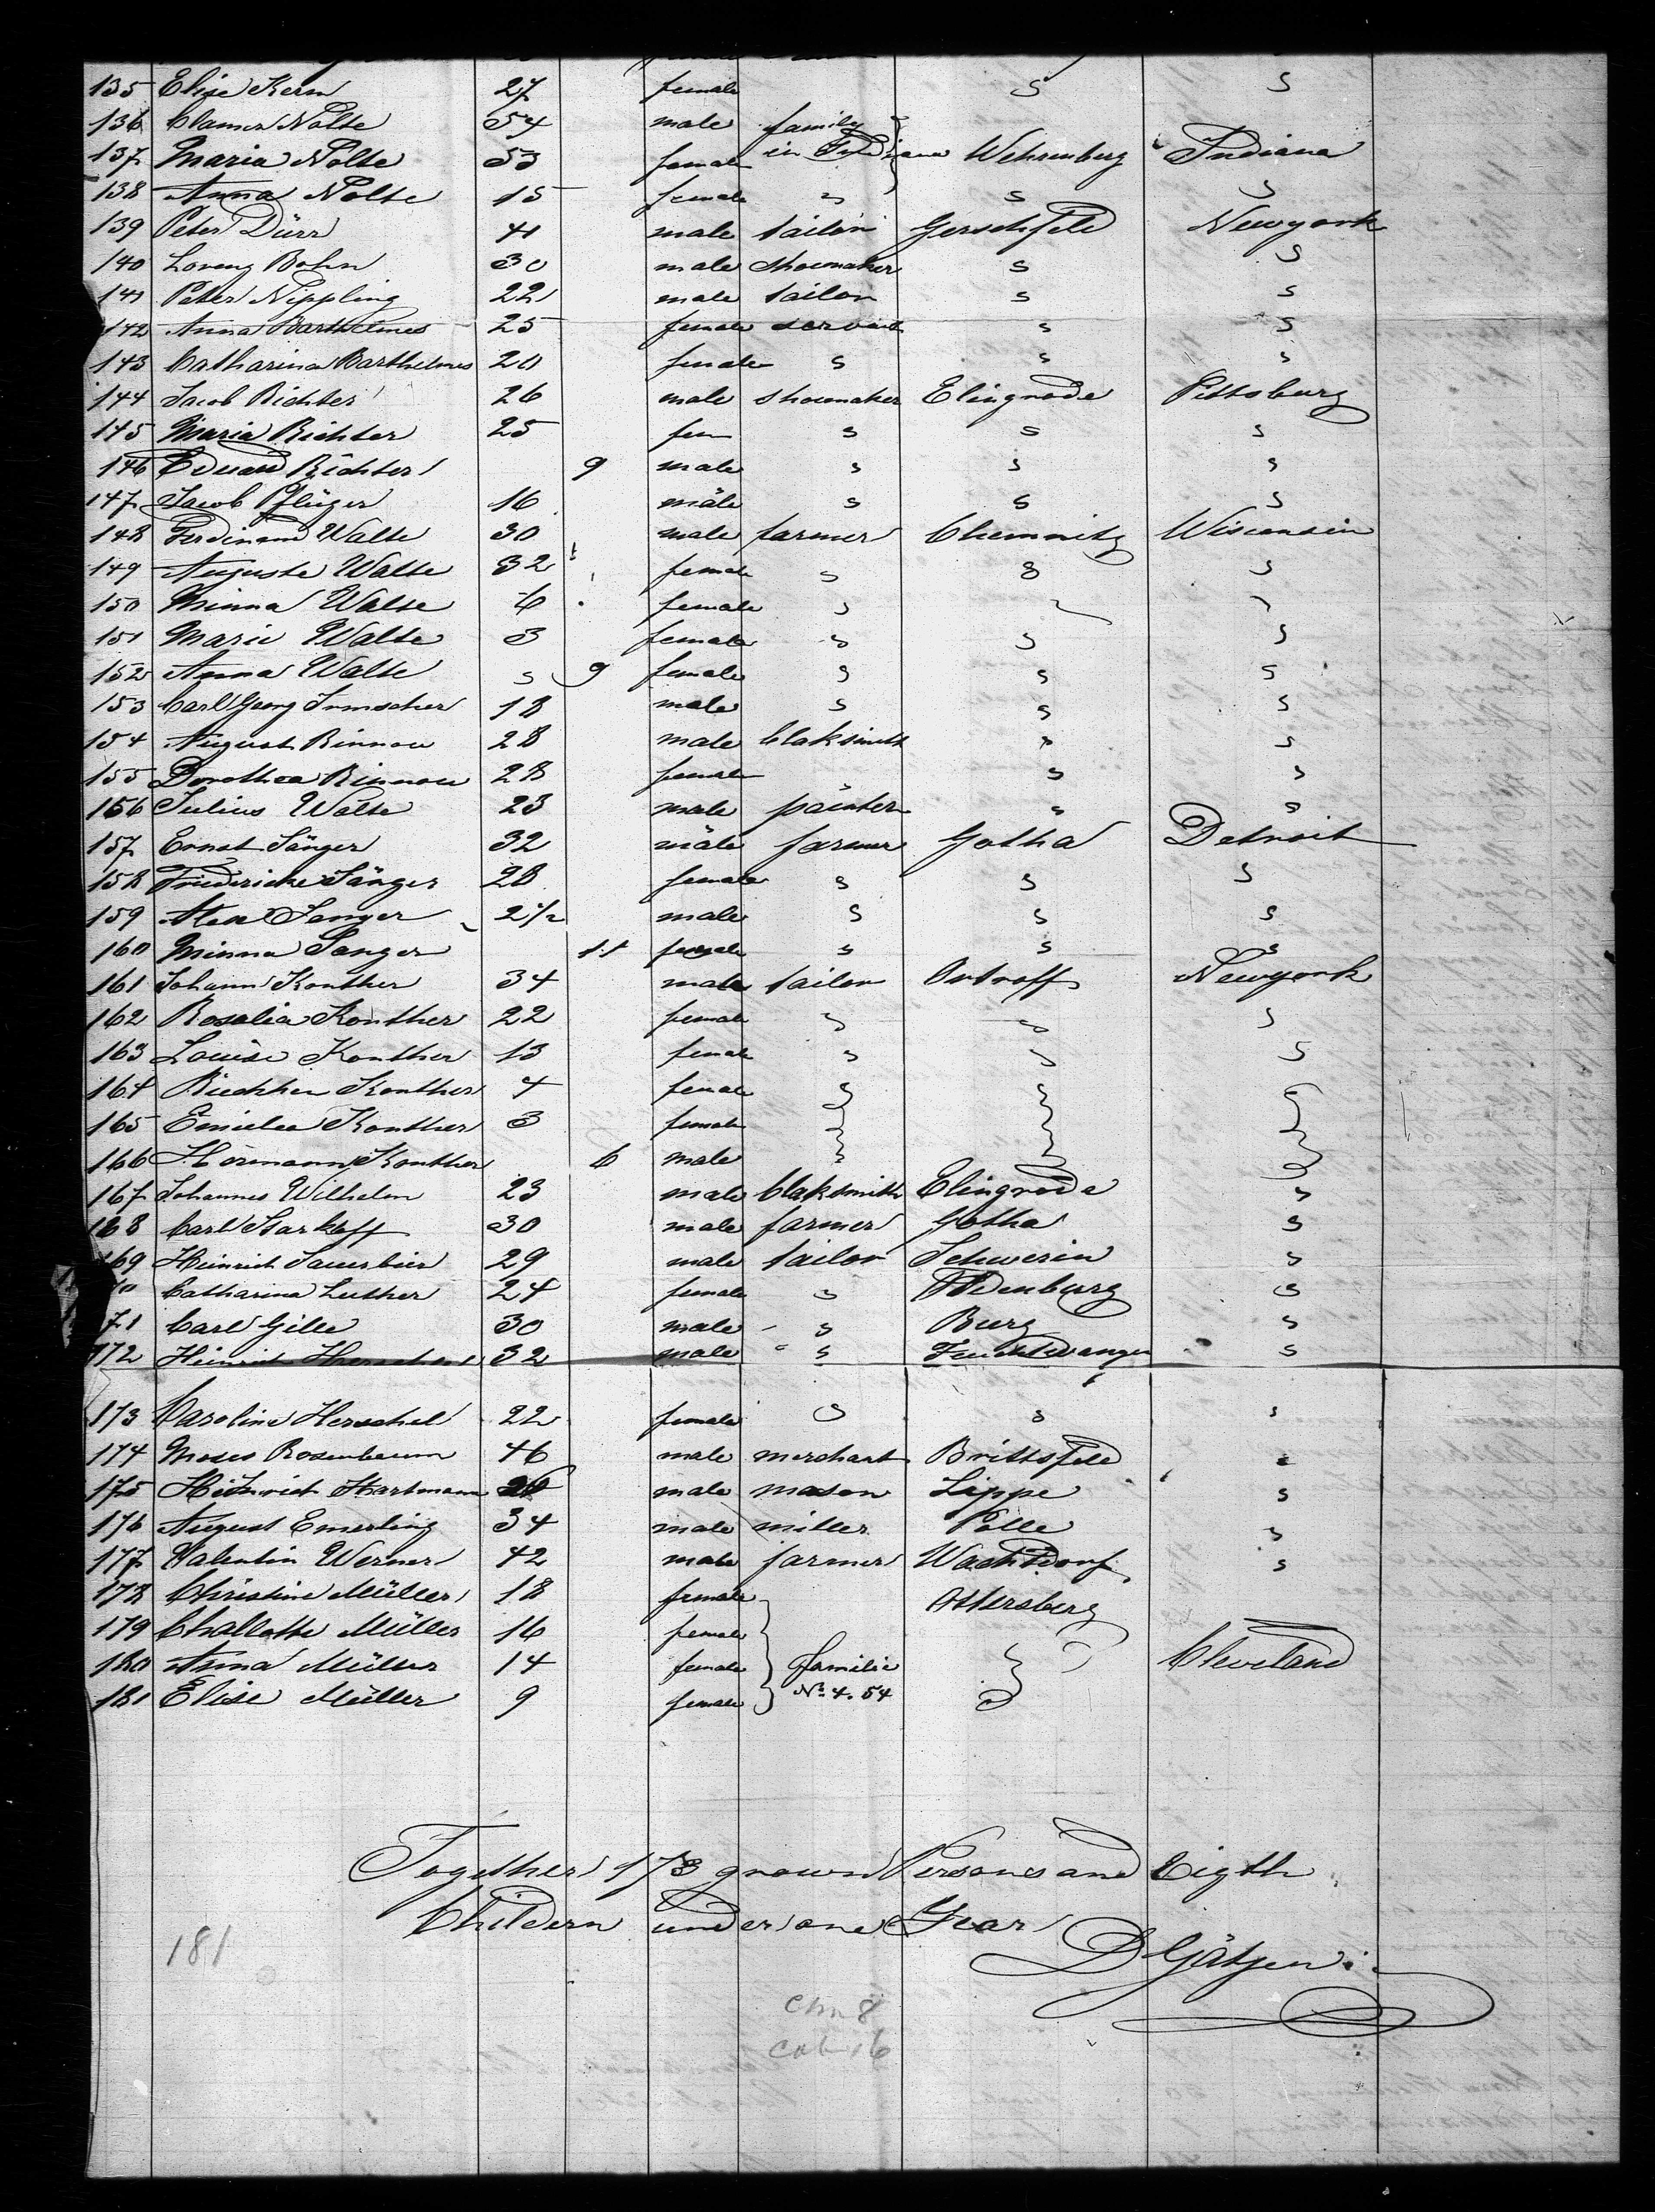 135 Elise Kern 27 female s s
136 Clamer Nolte 54 male family
137 Maria Nolte 53 female in Indiana Wehrenberg Indiana
138 Anna Nolte 15 female s s s
139 Peter Dürr 41 male tailor Gerschfeld Newyork
140 Lorenz Bohn 30 male shoemaker s s
141 Peter Nippling 22 male tailor s s
142 Anna Barthelmes 25 female servant s s
143 Catharina Barthelmes 20 female s s s
144 Jacob Richter 26 male shoemaker Elingrode Pittsburg
145 Maria Richter 25 fem s s s
146 Eduard Richter 9 male s s s
147 Jacob Pflüger 16 male s s s
148 Ferdinand Walte 30 male farmer Chemnitz Wisconsin
149 Auguste Walte 32 female s s s
150 Minna Walte 6 female s s s
151 Marie Walte 3 female s s s
152 Anna Walte s 9 female s s s
153 Carl Georg Irmscher 18 male s s s
154 August Rinnow 28 male blaksmith s s
155 Dorothea Rinnow 28 female s s
156 Julius Walte 23 male painter s s
157 Ernst Sänger 32 male farmer Gotha Detroit
158 Friedericke Sänger 28 female s s s
159 Sanger 2 1/2 male s s s
160 Minna Sanger 11 female s s s
161 Johann Konther 34 male tailor Newyork
162 Rosalia Konther 22 female s s s
163 Louise Konther 13 female s s s
164 Konther 4 female
165 Emielea Konther 3 female
166 Hermann Konther 6 male
167 Johannes Wilhelm 23 male blaksmith Elingrode s
168 Carl 30 male farmer Gotha s
169 Heinrich Sauerbier 29 male tailor Schwerin s
Catharina Luther 24 female s Oldenburg s
71 Carl Gille 30 male s Burg s
172 Heinrich 32 male s Feuchtwangen s
173 Caroline Herschel 22 female s s s
174 Moses Rosenbaum 46 male merchant Brittsfeld s
175 Heinrich Hartmann 26 male mason Lippe s
176 August Emerling 34 male miller Polle s
177 Valentin Werner 42 male farmer Wachtdorf s
178 Christine Müller 18 female Attersberg
179 Challotte Müller 16 female
180 Anna Müller 14 female familie Cleveland
181 Elise Müller 9 female No 4. 54
Together 173 grown Persons and Eigth
Childern under one Year
181
D Gätjen
chn 8
cab 16